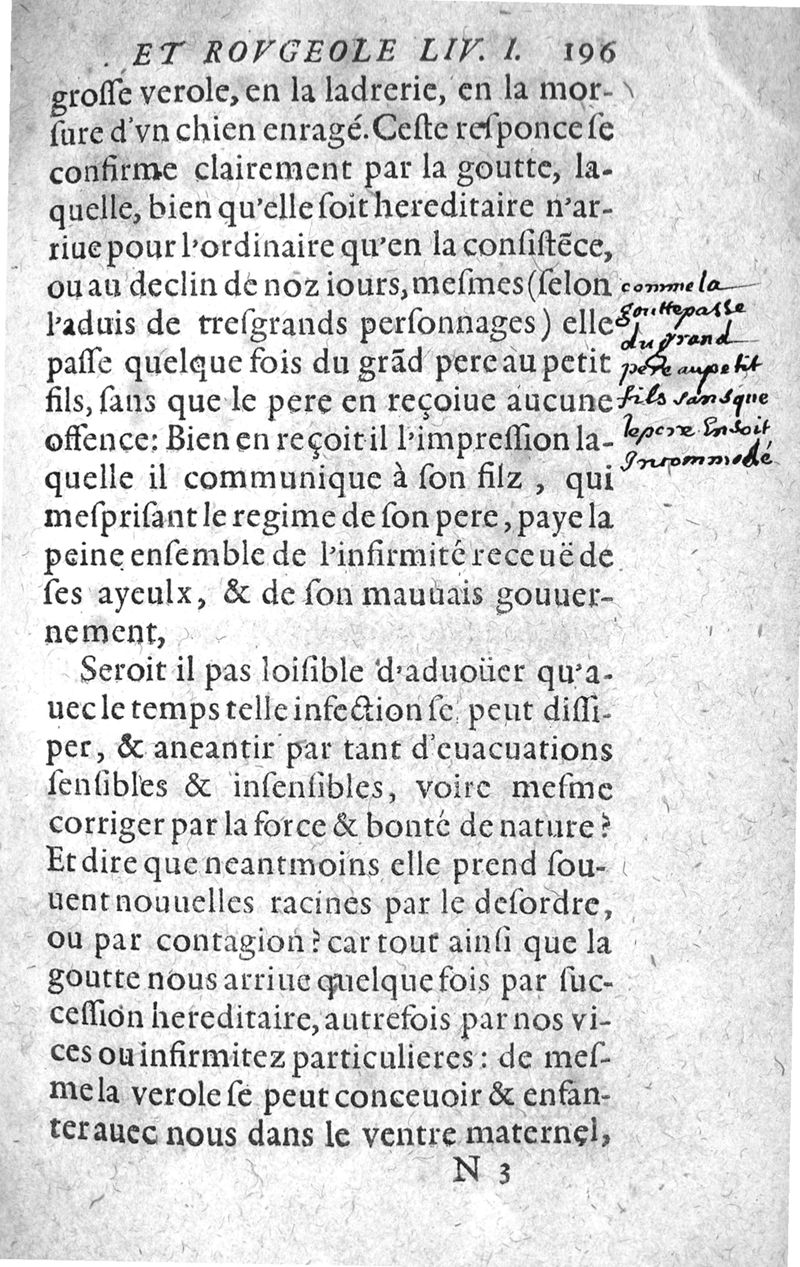 ET ROVGEOLE LIV. I. 196
groſſe verole, en la ladrerie, en la mor-
ſure d'vn chien enragé. Ceſte reſponce ſe
confirme clairement par la goutte, la-
quelle, bien qu'elle ſoit hereditaire n'ar-
riue pour l'ordinaire qu'en la conſiſtẽce,
ou au declin de noz iours, meſmes (ſelon
l'aduis de treſgrands perſonnages) elle
paſſe quelque fois du grãd pere au petit
fils, ſans que le pere en reçoiue aucune
offence: Bien en reçoit il l'impreſſion la-
quelle il communique à ſon filz, qui
meſpriſant le regime de ſon pere, paye la
peine enſemble de l'infirmité receuë de
ſes ayeulx, & de ſon mauuais gouuer-
nement,
Seroit il pas loiſible d'aduoüer qu'a-
uec le temps telle infection ſe peut diſſi-
per, & aneantir par tant d'euacuations
ſenſibles & inſenſibles, voire meſme
corriger par la force & bonté de nature?
Et dire que neantmoins elle prend ſou-
uent nouuelles racines par le deſordre,
ou par contagion? car tout ainſi que la
goutte nous arriue quelque fois par ſuc-
ceſſion hereditaire, autrefois par nos vi-
ces ou infirmitez particulieres: de meſ-
me la verole ſe peut conceuoir & enfan-
ter auec nous dans le ventre maternel,
N 3
comme la
goutte passe
du grand
pere au petit
fils sans que
le pere En soit
Incommodé